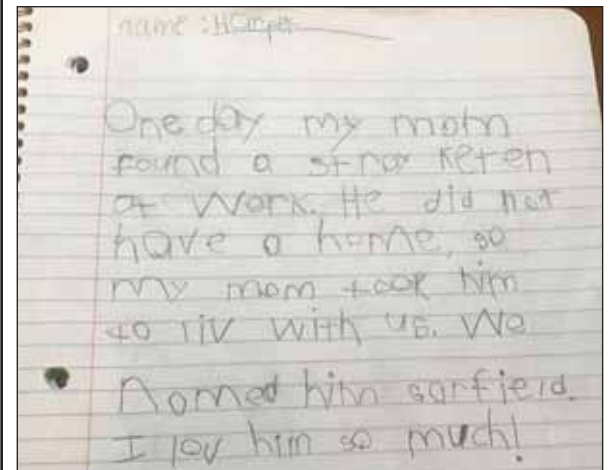 name: Harper
One day my mom
found a stray keten
at work. He did not
have a home, so
my mom took him
to liv with us. We
Named him garfield.
I lov him so much!